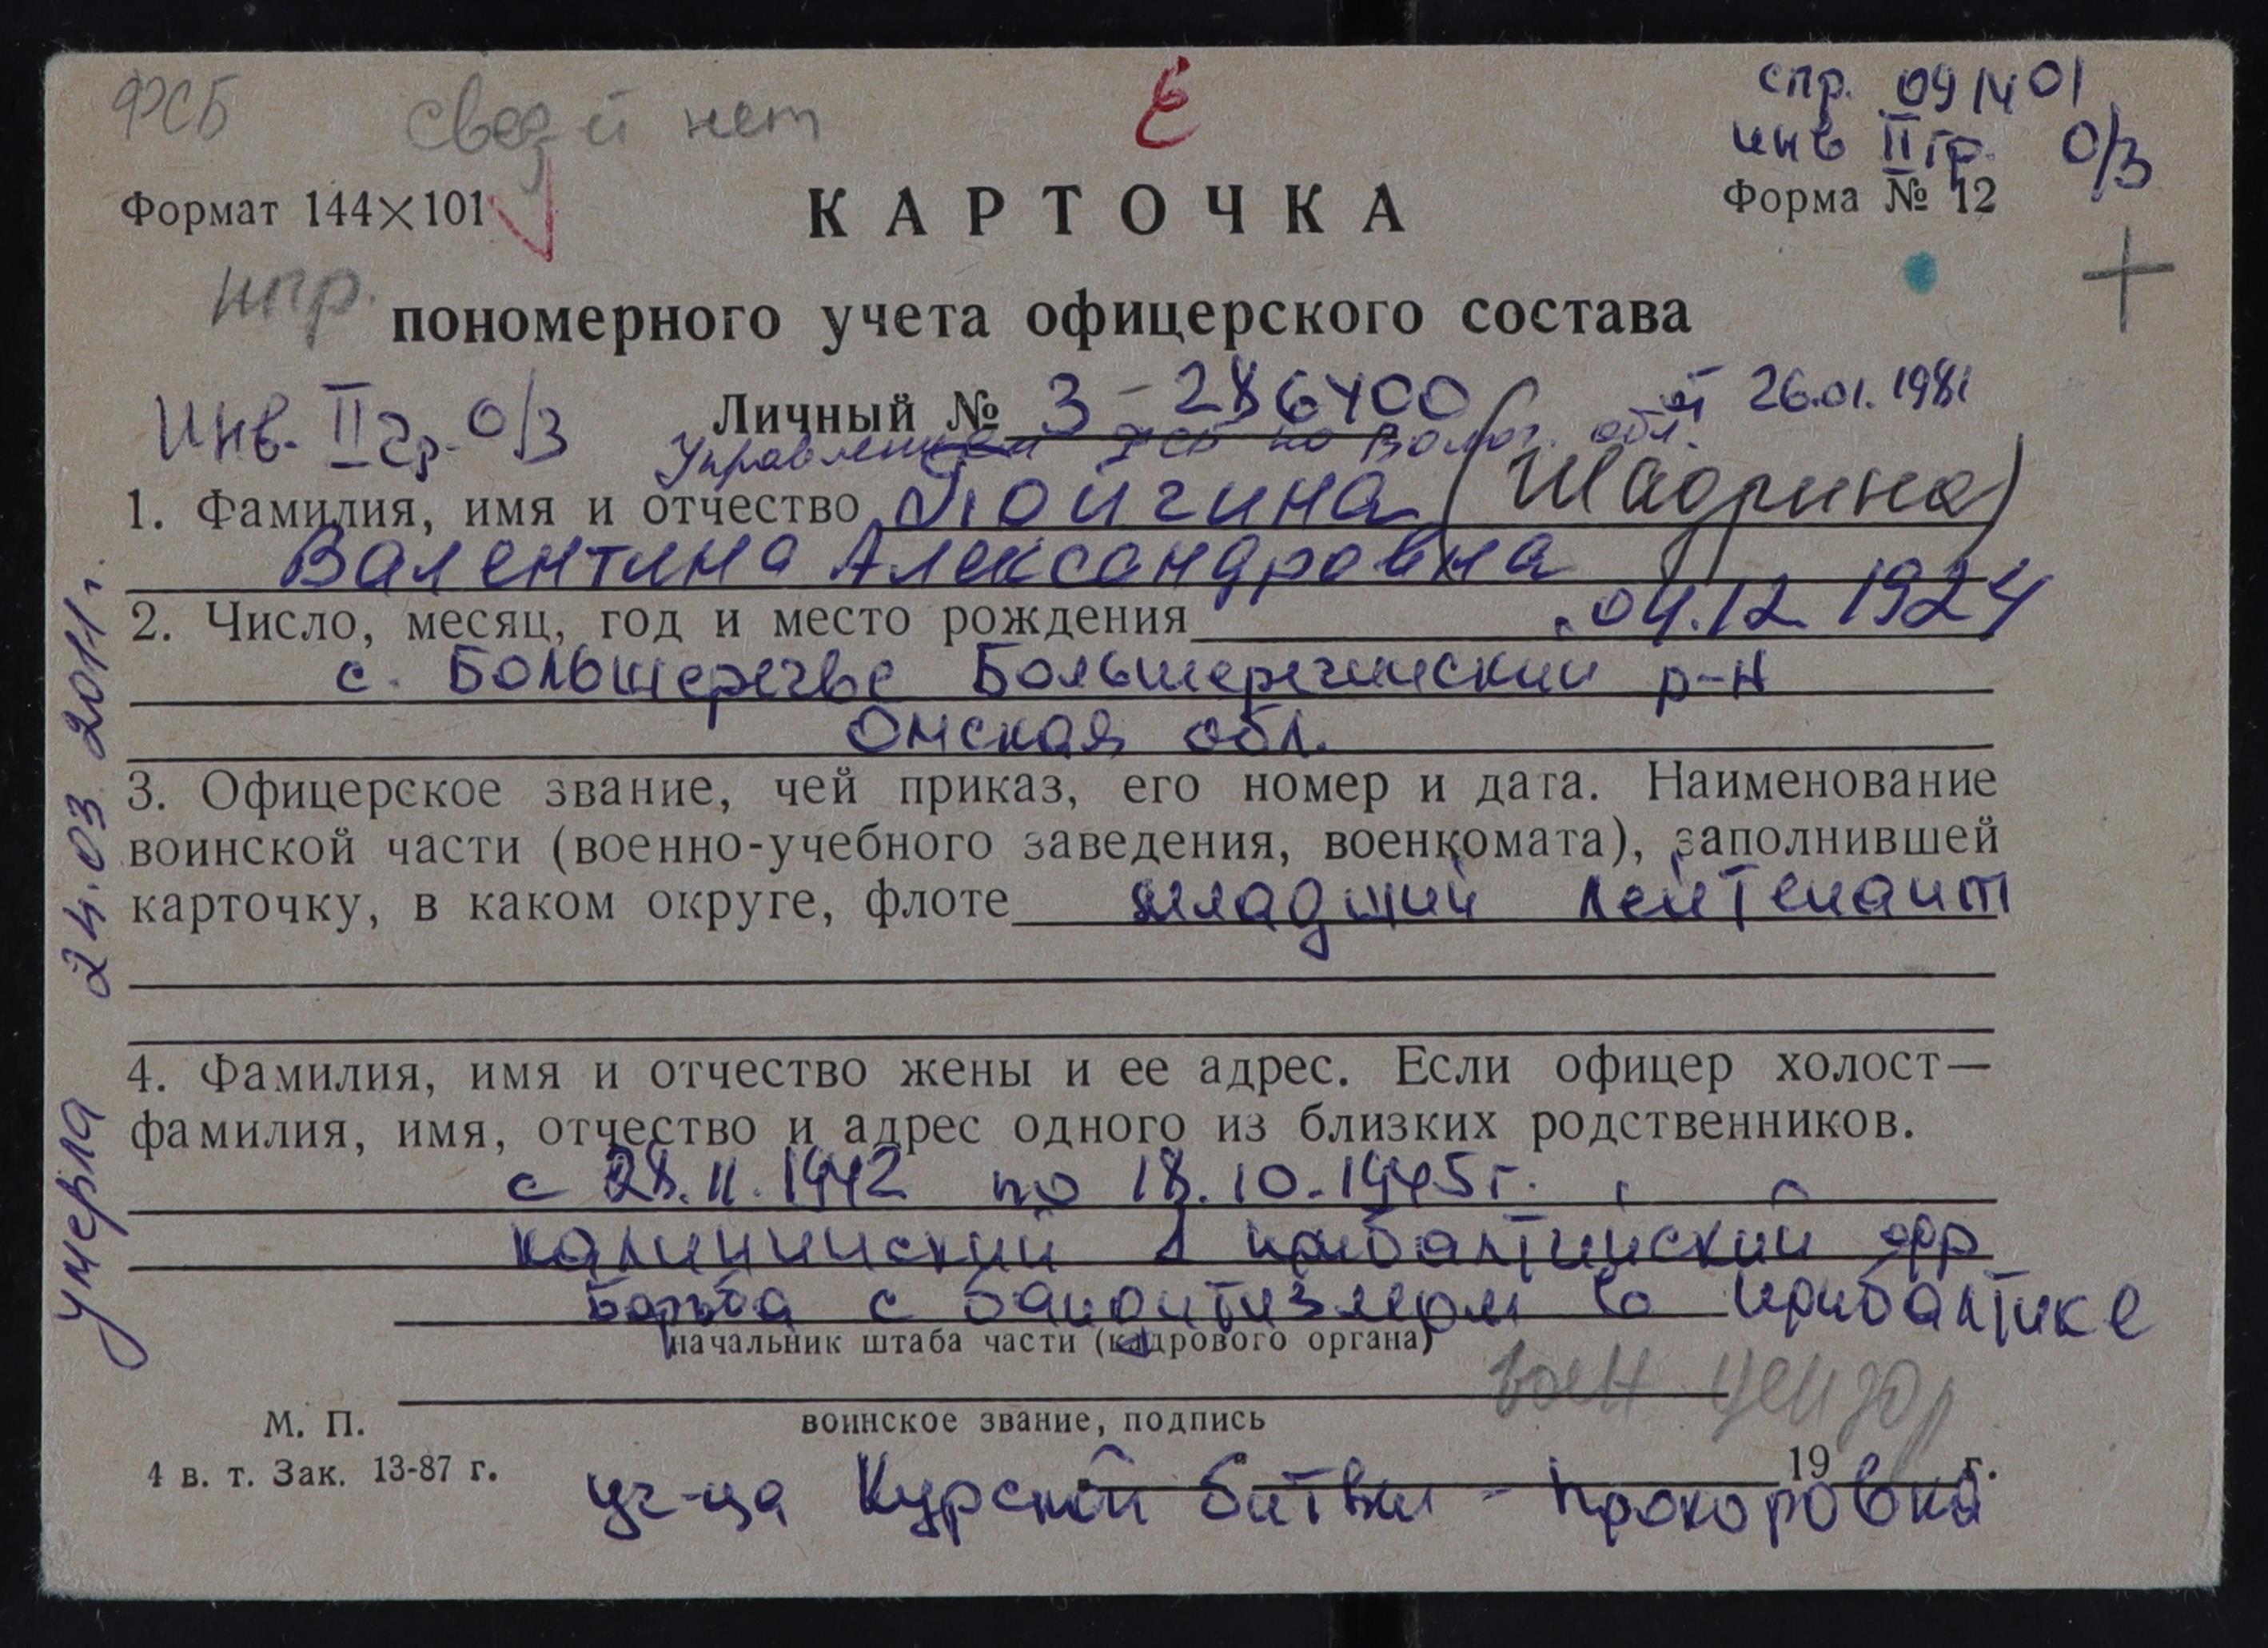 ФСБ сведей нет Е спр. 091401
инв II гр. О/З
Формат 144×101 КАРТОЧКА Форма № 12
нпр. +
пономерного учета офицерского состава
Инв. II гр. О/З Личный № З-286400 от 26.01.1981
ФСБ по Волог. обл.
1. Фамилия, имя и отчество (Шадрина)
Валентина Александровна
2. Число, месяц, год и место рождения 04.12.1924
с. Большеречье Большереченский р-н
Омская обл.
3. Офицерское звание, чей приказ, его номер и дата. Наименование
воинской части (военно-учебного заведения, военкомата), заполнившей
карточку, в каком округе, флоте младший лейтенант
4. Фамилия, имя и отчество жены и ее адрес. Если офицер холост—
фамилия, имя, отчество и адрес одного из близких родственников.
с 28.11.1942 по 18.10.1945 г.
калининский 1 прибалтийский фр
борьба с бандитизмом в прибалтике
начальник штаба части (кадрового органа)
воен цензор
воинское звание, подпись
М. П.
19 г.
4 в. т. Зак. 13-87 г.
уч-ца Курской битвы - Прохоровка
умерла 24.03.2011 г.